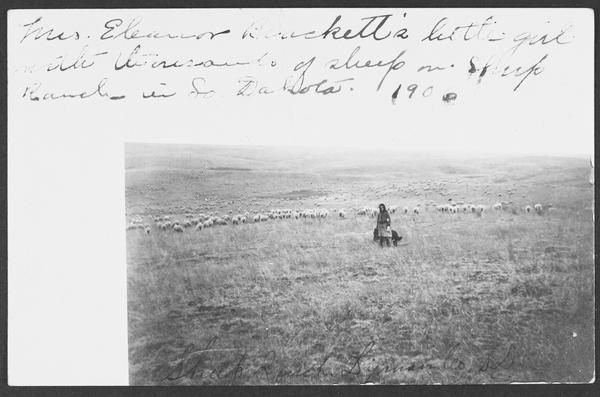 Mrs. Eleanor Brackett's little girl
with thousands of sheep on Sheep
Ranch in So. Dakota. 190
Sheep Ranch Lyman Co. SD